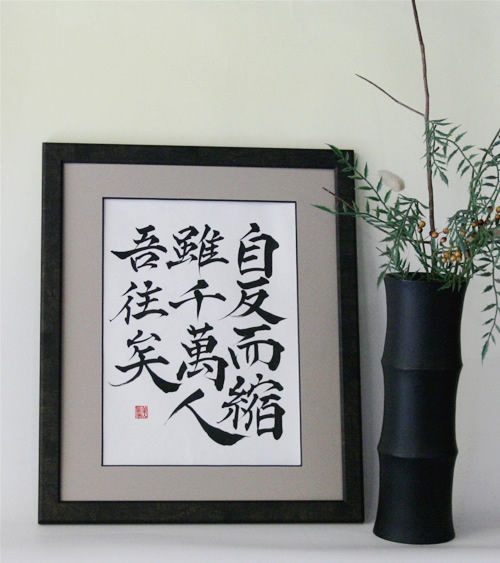 自反而縮
雖千萬人
吾往矣